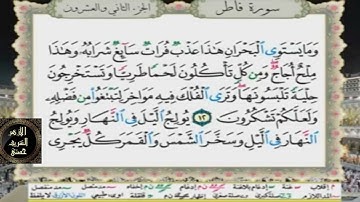 سورة فاطر
الجزء الثاني والعشرون
وَمَا يَسْتَوِي الْبَحْرَانِ هَٰذَا عَذْبٌ فُرَاتٌ سَائِغٌ شَرَابُهُ وَهَٰذَا
مِلْحٌ أُجَاجٌ وَمِن كُلٍّ تَأْكُلُونَ لَحْمًا طَرِيًّا وَتَسْتَخْرِجُونَ
حِلْيَةً تَلْبَسُونَهَا وَتَرَى الْفُلْكَ فِيهِ مَوَاخِرَ لِتَبْتَغُوا مِن فَضْلِهِ
وَلَعَلَّكُمْ تَشْكُرُونَ ١٢ يُولِجُ اللَّيْلَ فِي النَّهَارِ وَيُولِجُ
النَّهَارَ فِي اللَّيْلِ وَسَخَّرَ الشَّمْسَ وَالْقَمَرَ كُلٌّ يَجْرِي
الأزهر
الشريف